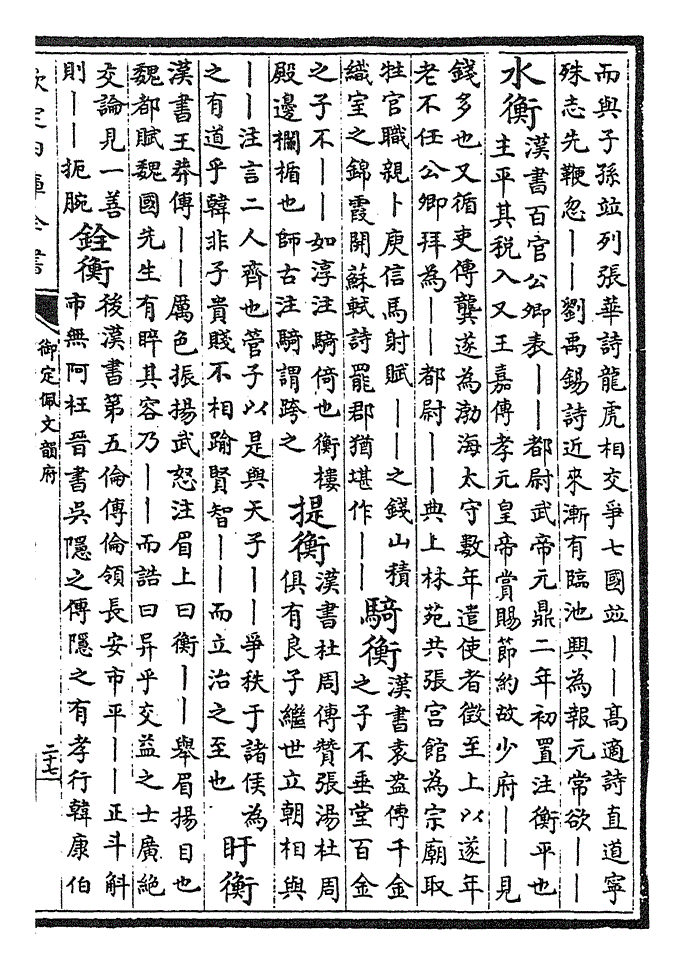 而與子孫竝列張華詩龍虎相交爭七國竝||高適詩直道寧
殊志先鞭忽||劉禹錫詩近來漸有臨池興為報元常欲||
水衡漢書百官公卿表||都尉武帝元鼎二年初置注衡平也
主平其税入又王嘉傳孝元皇帝賞賜節約故少府||見
錢多也又循吏傳龔遂為渤海太守數年遣使者徵至上以遂年
老不任公卿拜為||都尉||典上林苑共張宮館為宗廟取
牲官職親卜庾信馬射賦||之錢山積
織室之錦霞開蘇軾詩罷郡猶堪作||
騎衡漢書袁盎傳千金
之子不垂堂百金
之子不||如淳注騎倚也衡樓
殿邊欄楯也師古注騎謂跨之
提衡漢書杜周傳贊張湯杜周
俱有良子繼世立朝相與
||注言二人齊也管子以是與天子||爭秩于諸侯為
之有道乎韓非子貴賤不相踰賢智||而立治之至也
盱衡
漢書王莽傳||厲色振揚武怒注眉上曰衡||舉眉揚目也
魏都賦魏國先生有睟其容乃||而誥曰异乎交益之士廣絶
交論見一善
則||扼腕
銓衡後漢書第五倫傳倫領長安市平||正斗斛
市無阿枉晉書吳隱之傳隱之有孝行韓康伯
欽定四庫全書
御定佩文韻府
二十七